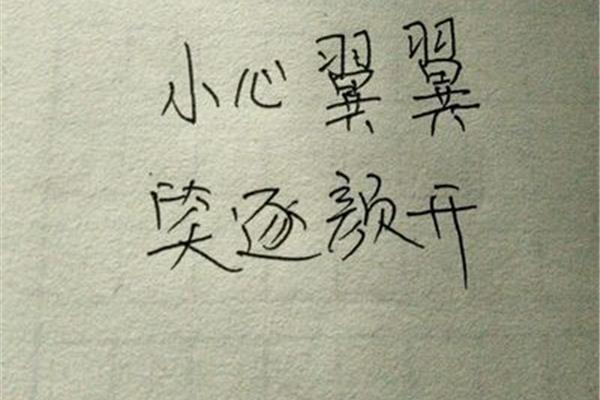 小心翼翼
笑逐颜开